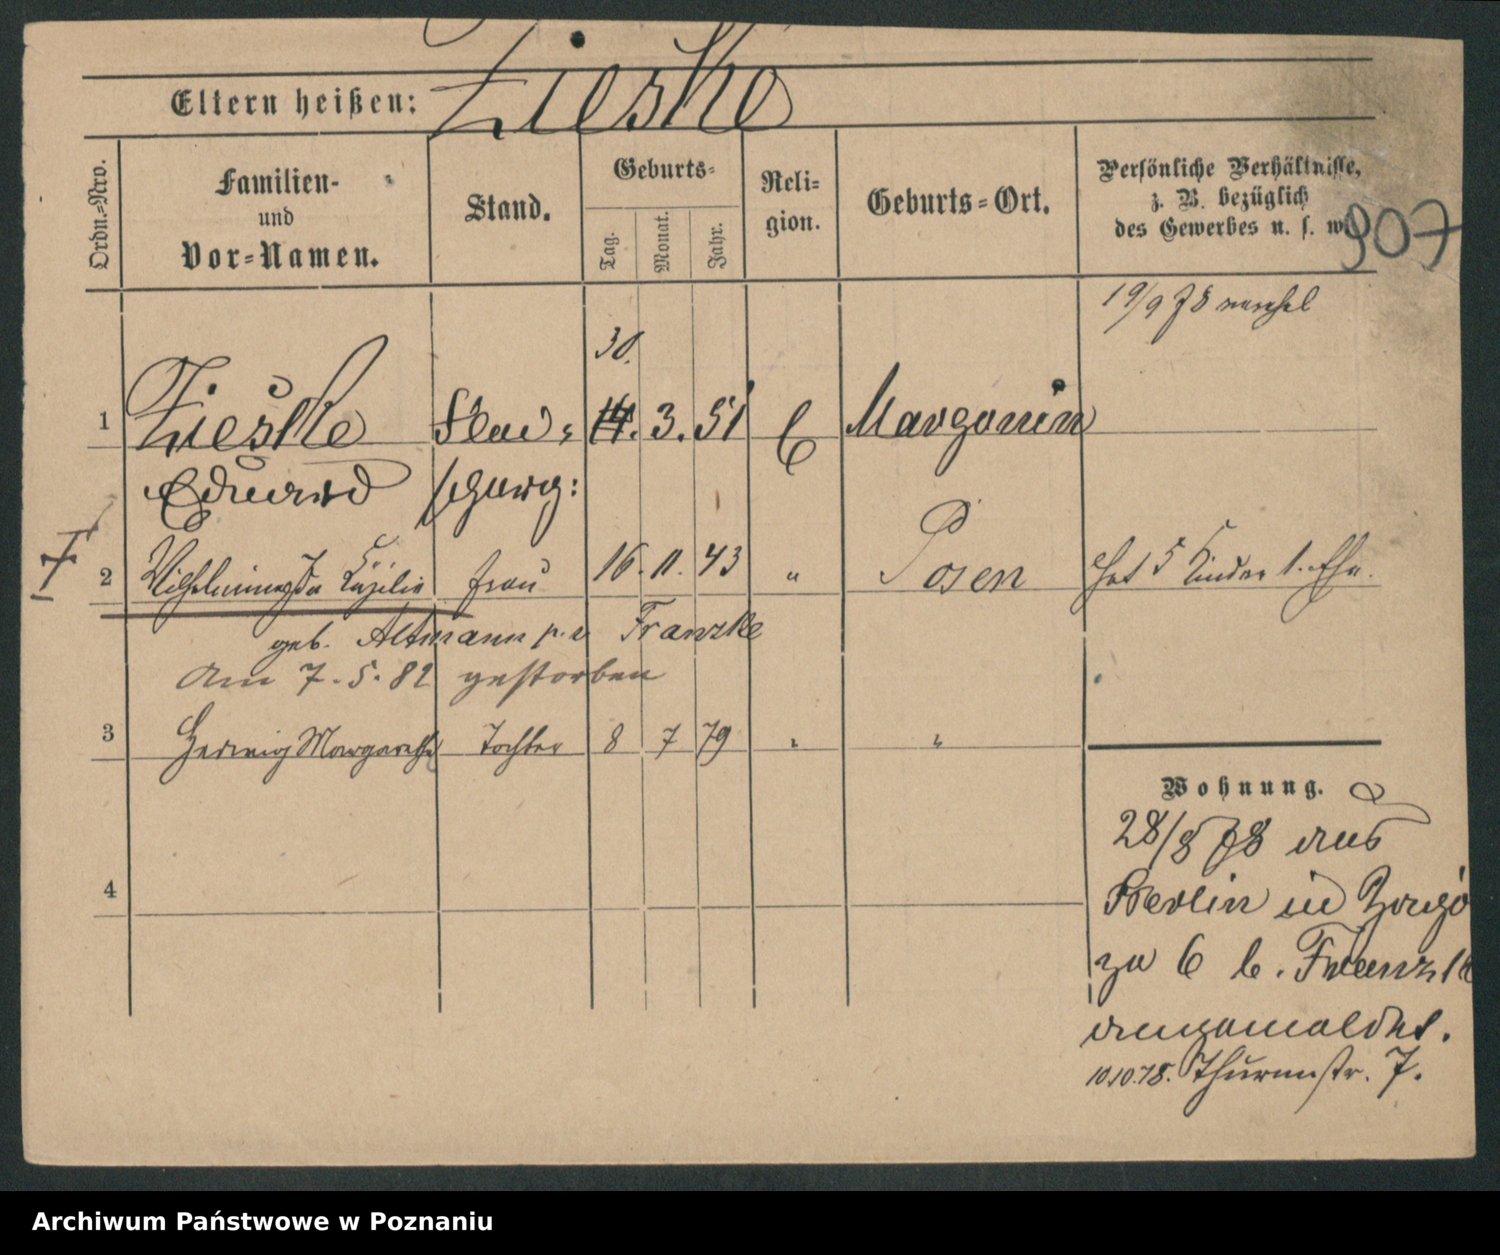 Zieske
Eltern heißen:
Ordn.=Nro.
Familien-
und
Vor=Namen.
Stand.
Geburts=
Tag.
Monat.
Jahr.
Reli=
gion.
Geburts=Ort.
Persönliche Verhältnisse,
z. B. bezüglich
des Gewerbes u. s. w.
907
19/9 78
30.
1 Zieske 3. 51 Margonin
Eduard
2 Cäzilie Frau 16. 11. 43 " Posen hat 5 Kinder 1. Ehe.
geb. Altmann Franzke
Am 7. 5. 82 gestorben
3 Hedwig Margarethe Tochter 8 7 79 " "
Wohnung.
28/8 78 aus
Berlin in
zu 6 b. Franzke
angemeldet.
10.10.78. Thurmstr. 7.
4
Archiwum Państwowe w Poznaniu